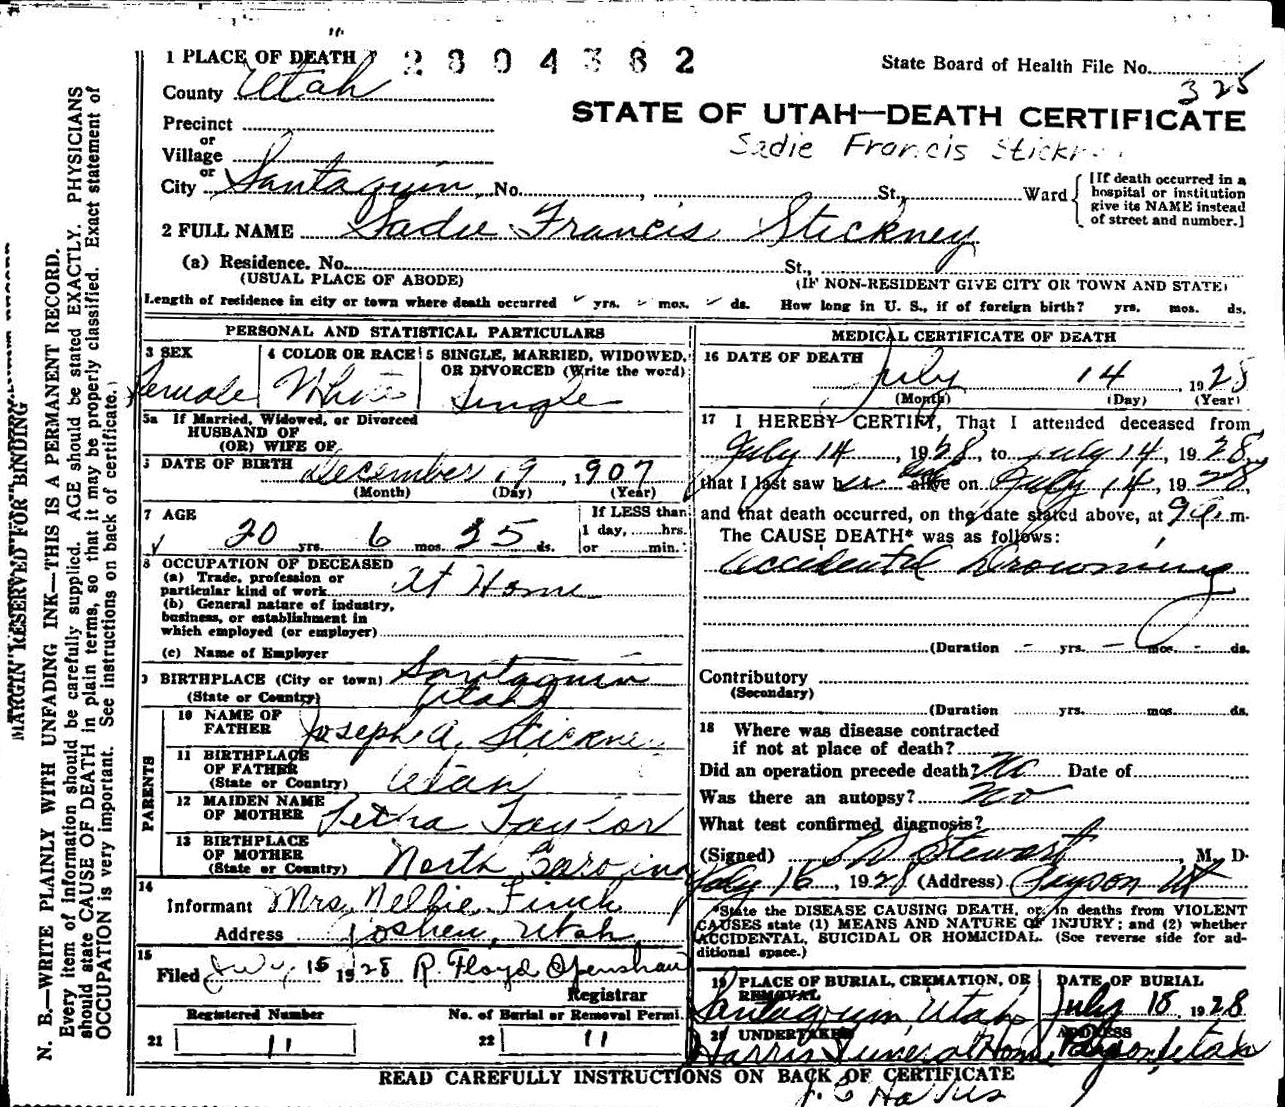 1 PLACE OF DEATH 2804382
State Board of Health File No. 325
County Utah
STATE OF UTAH—DEATH CERTIFICATE
Precinct
Sadie Francis Stickn
or
Village
or
City Santaquin, No. , St., Ward
[If death occurred in a
hospital or institution
give its NAME instead
of street and number.]
2 FULL NAME Sadie Francis Stickney
(a) Residence. No. St.,
(USUAL PLACE OF ABODE) (IF NON-RESIDENT GIVE CITY OR TOWN AND STATE)
Length of residence in city or town where death occurred yrs. mos. ds. How long in U. S., if of foreign birth? yrs. mos. ds.
PERSONAL AND STATISTICAL PARTICULARS
3 SEX
Female
4 COLOR OR RACE
White
5 SINGLE, MARRIED, WIDOWED,
OR DIVORCED (Write the word)
Single
5a If Married, Widowed, or Divorced
HUSBAND OF
(OR) WIFE OF
DATE OF BIRTH December 19, 1907
(Month) (Day) (Year)
7 AGE
20 yrs. 6 mos. 25 ds.
If LESS than
1 day, hrs.
or min.
8 OCCUPATION OF DECEASED
(a) Trade, profession or
particular kind of work At Home
(b) General nature of industry,
business, or establishment in
which employed (or employer)
(c) Name of Employer
9 BIRTHPLACE (City or town) Santaquin
(State or Country) Utah
PARENTS
10 NAME OF
FATHER Joseph A. Stickne
11 BIRTHPLACE
OF FATHER
(State or Country) Utah
12 MAIDEN NAME
OF MOTHER Letha Taylor
13 BIRTHPLACE
OF MOTHER
(State or Country) North Carolina
14
Informant Mrs. Nellie Finch
Address Goshen, Utah
15
Filed July 15 1928 R. Floyd Openshaw
Registrar
Registered Number No. of Burial or Removal Permi.
21 11 22 11
MEDICAL CERTIFICATE OF DEATH
16 DATE OF DEATH
July 14 1928
(Month) (Day) (Year)
17 I HEREBY CERTIFY, That I attended deceased from
July 14, 1928, to July 14, 1928,
that I last saw her alive on July 14, 1928,
and that death occurred, on the date stated above, at 9 a. m.
The CAUSE DEATH* was as follows:
Accidental Drowning
(Duration - yrs. - mos. - ds.
Contributory
(Secondary)
(Duration yrs. mos. ds.
18 Where was disease contracted
if not at place of death?
Did an operation precede death? No Date of
Was there an autopsy? No
What test confirmed diagnosis?
(Signed) Stewart, M. D.
July 16, 1928 (Address) Payson Ut
*State the DISEASE CAUSING DEATH, or, in deaths from VIOLENT
CAUSES state (1) MEANS AND NATURE OF INJURY; and (2) whether
ACCIDENTAL, SUICIDAL OR HOMICIDAL. (See reverse side for ad-
ditional space.)
19 PLACE OF BURIAL, CREMATION, OR
REMOVAL
Santaquin, Utah
DATE OF BURIAL
July 18 1928
20 UNDERTAKER
Harris Funeral Home
ADDRESS
Payson, Utah
READ CAREFULLY INSTRUCTIONS ON BACK OF CERTIFICATE
MARGIN RESERVED FOR BINDING
N. B.—WRITE PLAINLY WITH UNFADING INK—THIS IS A PERMANENT RECORD.
Every item of information should be carefully supplied. AGE should be stated EXACTLY. PHYSICIANS
should state CAUSE OF DEATH in plain terms, so that it may be properly classified. Exact statement of
OCCUPATION is very important. See instructions on back of certificate.)